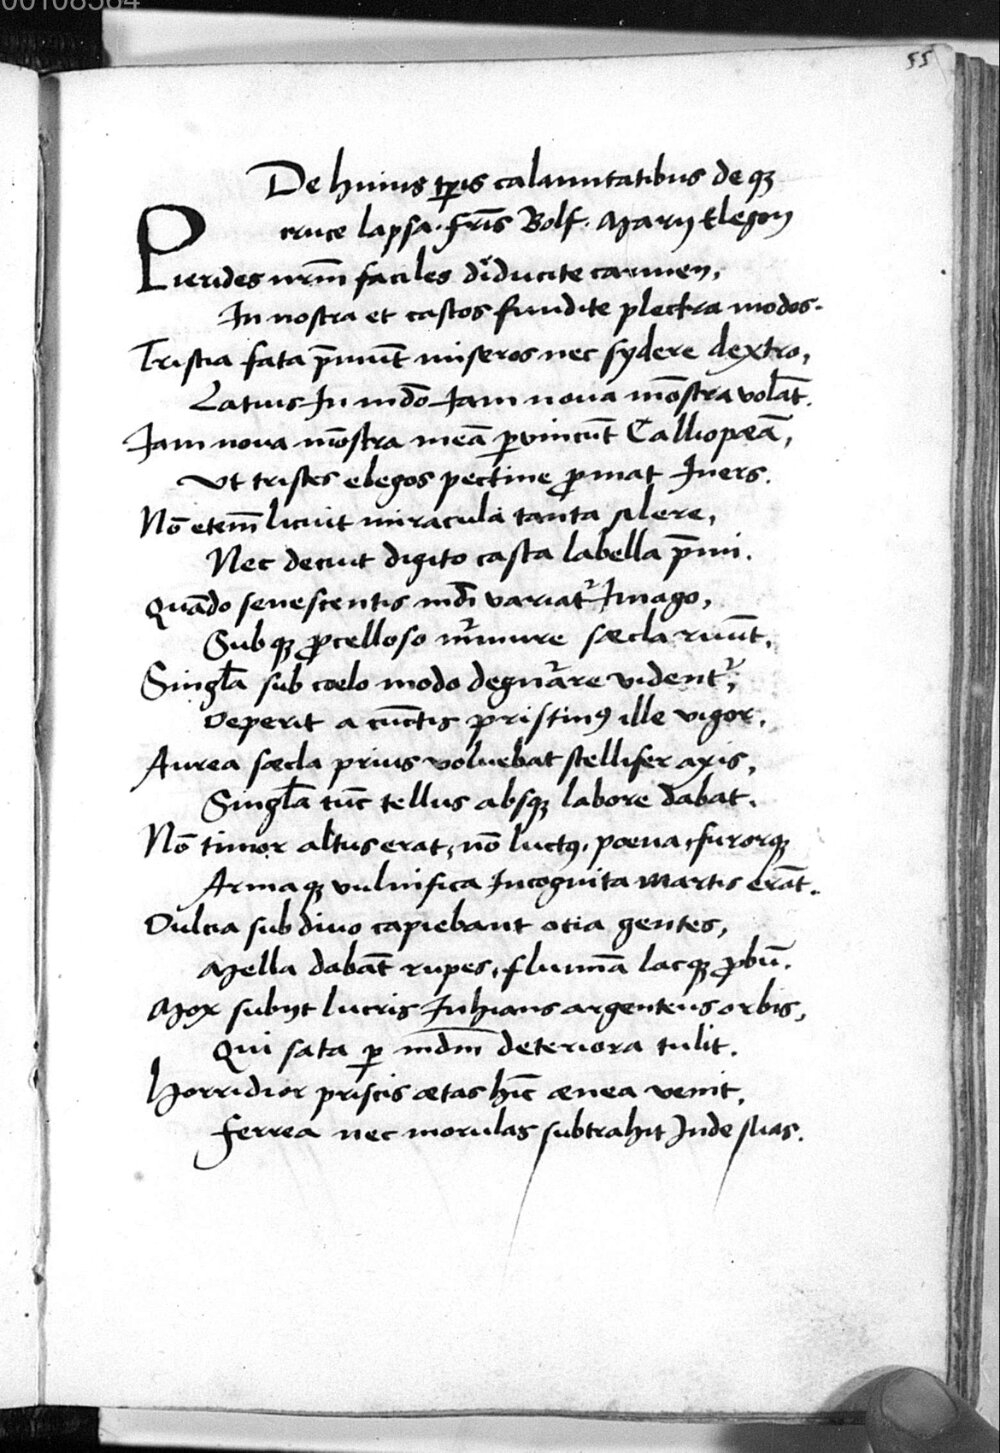 00108564
55
De huius tp̄ris calamitatibus de qꝫ
cruce lapsa. fr̄is Bolf. Marij Elegon
Pierides nrm̄ faciles diducite carmen,
In nostra et castos fundite plectra modos.
Tristia fata p̄munt miseros nec sydere dextro,
Latius In mdō Iam noua mōstra volāt.
Iam noua mōstra meā ꝑuincūt Calliopæā,
Vt tristes elegos pectine ꝓmat Iners.
Nō etem̄ licuit miracula tanta silere,
Nec decuit digito casta labella p̄mi.
Quādo senescentis mdī variatᷣ Imago,
Sub qꝫ ꝓcelloso mᷣmure sæcla ruūt.
Singl̄a sub cœlo modo degn̄rare videntᷣ,
Deperit a cūctis pristinꝰ ille vigor.
Aurea sæcla prius voluebat stellifer axis,
Singl̄a tūc tellus absqꝫ labore dabat.
Nō timor altus erat, nō luctꝰ, poena, furorqꝫ
Armaqꝫ vulnifica Incognita Martis erāt.
Dulcia sub diuo capiebant otia gentes,
Mella dabāt rupes, flumīa lacqꝫ ꝓbū.
Mox subijt lucris Inhians argenteus orbis,
Qui sata ꝑ mdm̄ deteriora tulit.
Horridior priscis ætas hīc ænea venit,
Ferrea nec morulas subtrahit Inde suas.